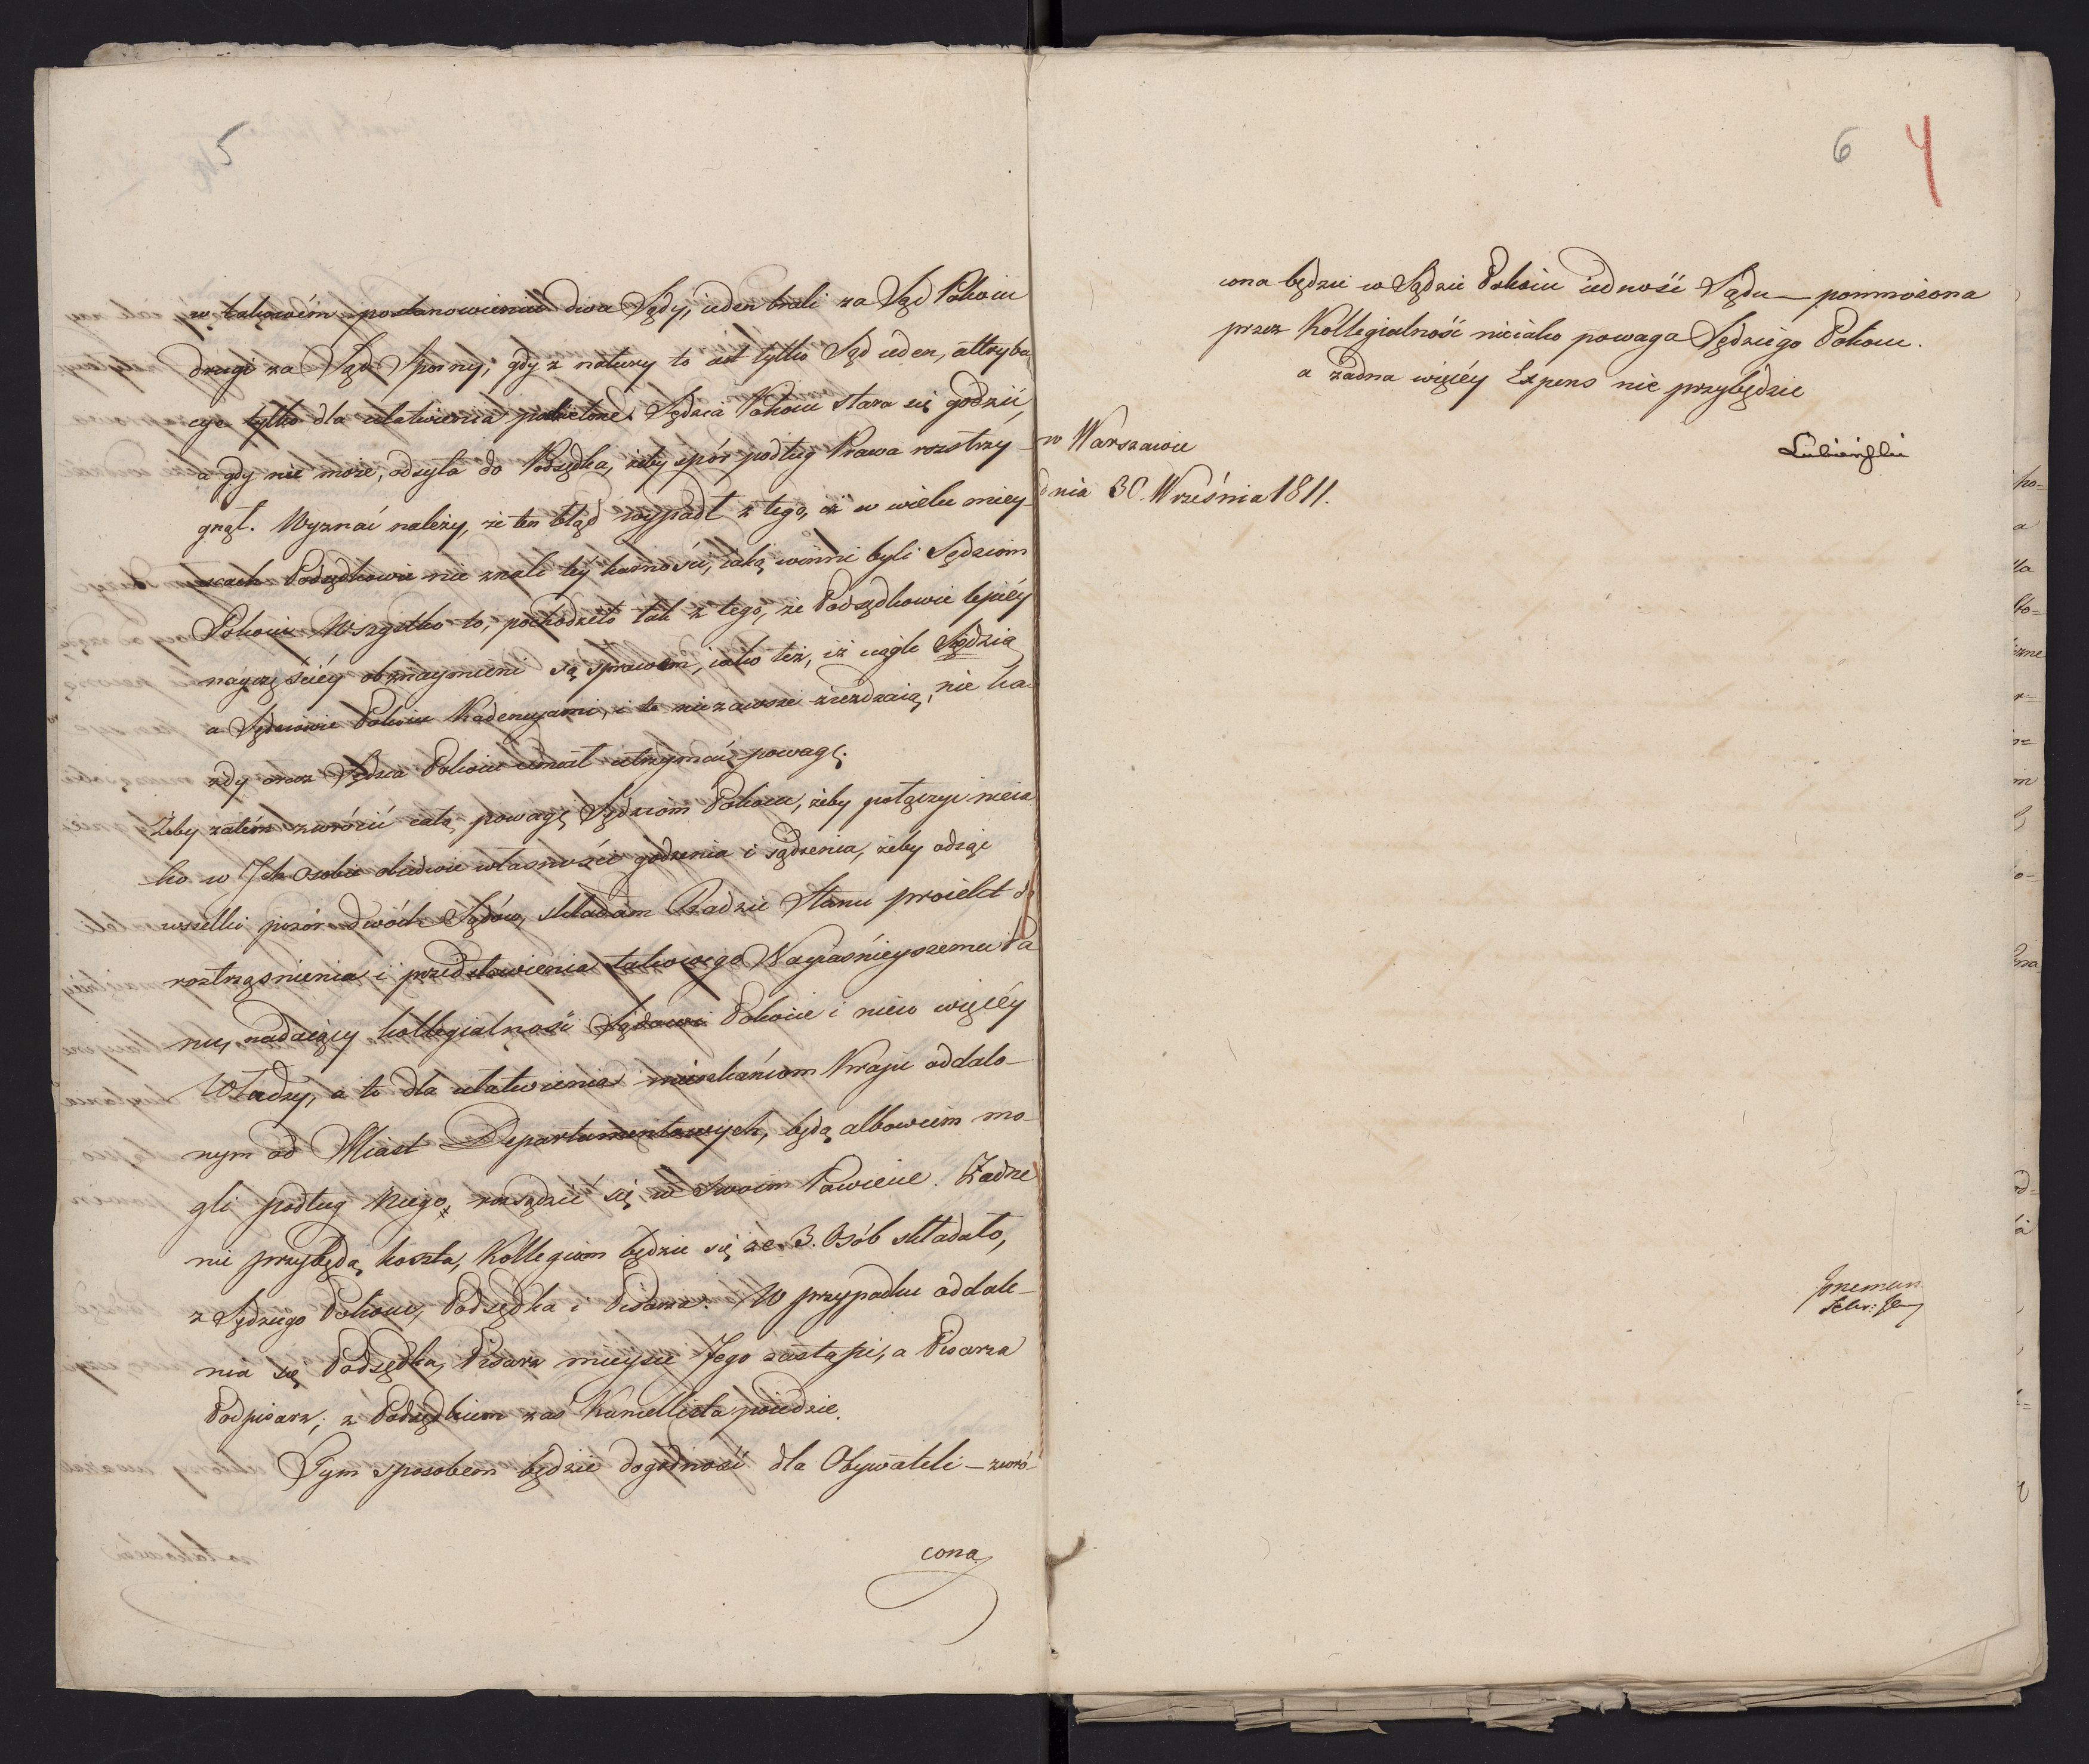 5
w takowém postanowieniu dwa Sądy, ieden brali za Sąd Pokoiu
drugi za Sąd Sporny; gdy z natury to iest tylko Sąd ieden, attrybu
cye tylko dla ułatwienia podzielone. Sędzia Pokoiu stara się godzić
a gdy nie może, odsyła do Podsędka, żeby spór podług Prawa rozstrzy-
gnął. Wyznać należy, że ten błąd wypadł z tego, iż w wielu miey-
scach Podsędkowie nie znali téy karności, iaką winni byli Sędziom
Pokoiu. Wszystko to, pochodziło tak z tego, że Podsędkowie lepiéy
nayczęściéy obznaymieni są sprawom, iako też, iż ciągle Sędzią
a Sędziowie Pokoiu Kadencyami, i to nie zawsze zieżdzaią, nie ka
żdy oraz Sędzia Pokoiu umiał utrzymać powagę.
Żeby zatém zwrócić całą powagę Sędziom Pokoiu, żeby połączyć nieia
ko w Ich Osobie obiedwie własności godzenia i sądzenia, żeby odiąć
wszelki pozór dwóch Sądów, składam Radzie Stanu proiekt do
roztrząsnienia i przedstawienia takowego Nayiaśnieyszemu Pa
nu, nadaiący kollegialność Sądowi Pokoiu i nieco więcéy
Władzy, a to dla ułatwienia mieszkańcom Kraju oddalo-
nym od Miast Departamentowych, będą albowiem mo-
gli podług Niego, rozsądzić się w swoim Powiecie. Żadne
nie przybędą koszta, Kollegium będzie się ze 3. Osób składało,
z Sędziego Pokoiu, Podsędka i Pisarza. W przypadku oddale-
nia się Podsędka, Pisarz mieysce Jego zastąpi, a Pisarza
Podpisarz; z Podsędkiem zaś Kancellista poiedzie.
Tym sposobem będzie dogodność dla Obywateli – zwró-
cona
6 4
cona będzie w Sądzie Pokoiu iedność Sądu – pomnożona
przez Kollegialność nieiako powaga Sędziego Pokoiu.
a żadna więcéy Expens nie przybędzie
w Warszawie
Lubieński
dnia 30. Września 1811.